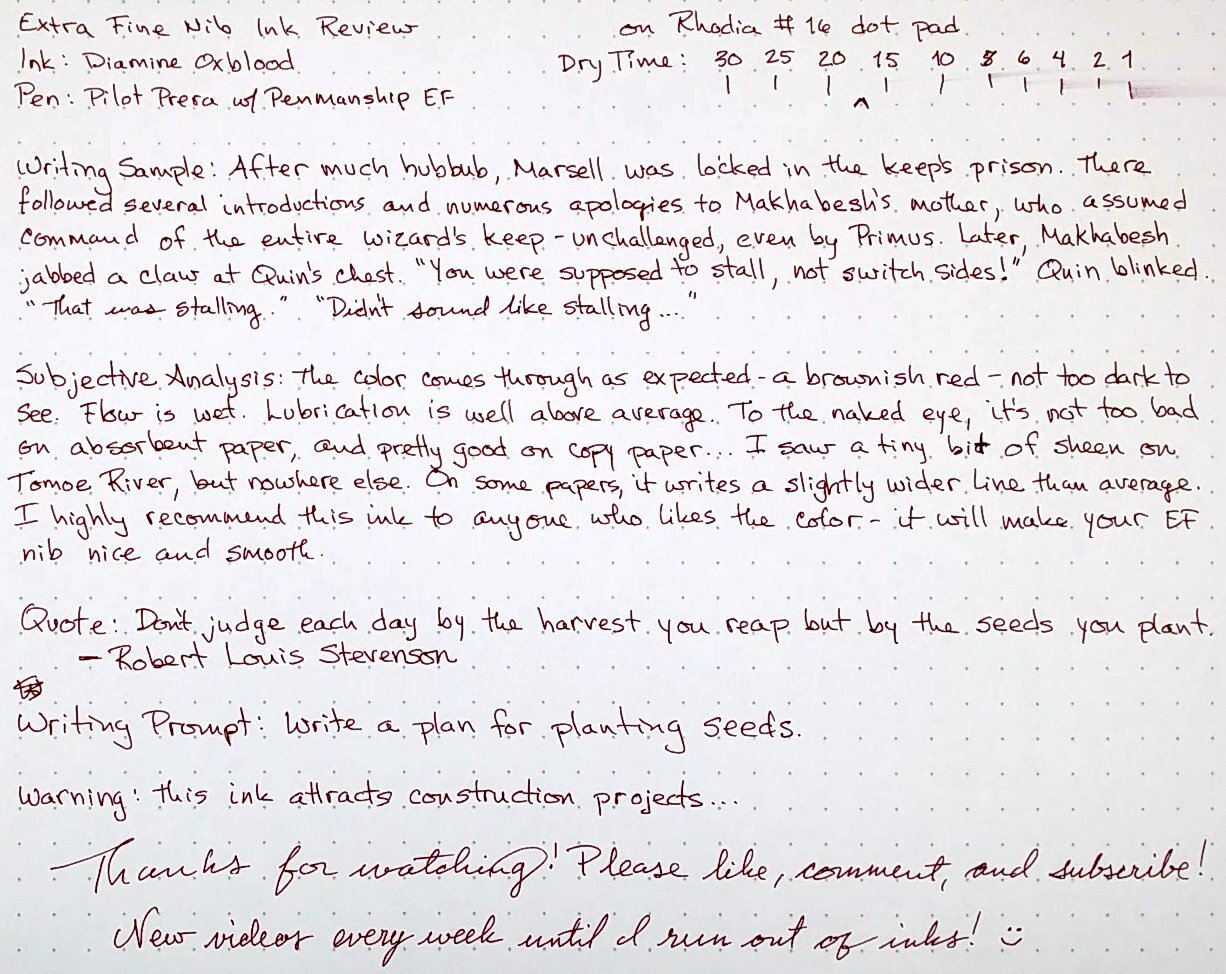 Extra Fine Nib Ink Review
on Rhodia # 16 dot pad
Ink: Diamine Oxblood
Dry Time: 30 25 20 15 10 8 6 4 2 1
Pen: Pilot Prera w/ Penmanship EF
^
Writing Sample: After much hubbub, Marsell was locked in the keep's prison. There
followed several introductions and numerous apologies to Makhabesh's mother, who assumed
command of the entire wizard's keep - unchallenged, even by Primus. Later, Makhabesh
jabbed a claw at Quin's chest. "You were supposed to stall, not switch sides!" Quin blinked.
"That was stalling." "Didn't sound like stalling..."
Subjective Analysis: The color comes through as expected - a brownish red - not too dark to
see. Flow is wet. Lubrication is well above average. To the naked eye, it's not too bad
on absorbent paper, and pretty good on copy paper... I saw a tiny bit of sheen on
Tomoe River, but nowhere else. On some papers, it writes a slightly wider line than average.
I highly recommend this ink to anyone who likes the color - it will make your EF
nib nice and smooth.
Quote: Don't judge each day by the harvest you reap but by the seeds you plant.
- Robert Louis Stevenson
Writing Prompt: Write a plan for planting seeds.
Warning: this ink attracts construction projects...
Thanks for watching! Please like, comment, and subscribe!
New videos every week until I run out of inks! :)